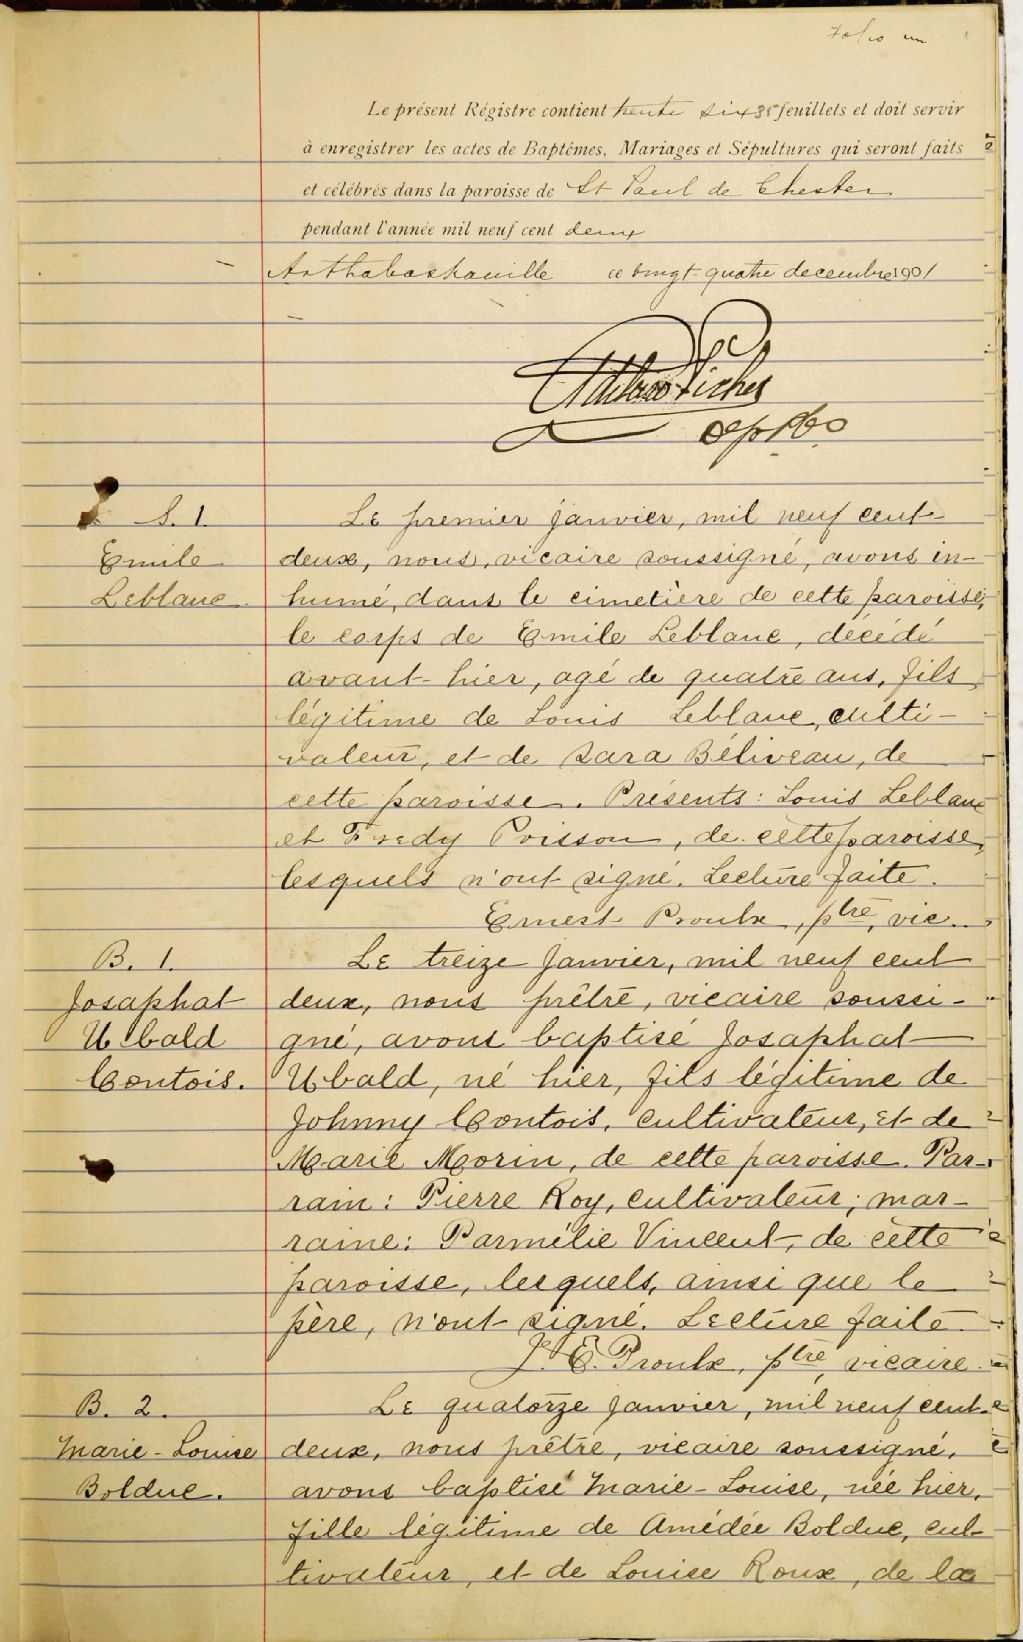 Folio un
Le présent Régistre contient trente six feuillets et doit servir
à enregistrer les actes de Baptêmes, Mariages et Sépultures qui seront faits
et célébrés dans la paroisse de St Paul de Chester
pendant l'année mil neuf cent deux
Arthabaskaville ce vingt-quatre decembre 1901
S. 1.
Emile
Leblanc.
Le premier janvier, mil neuf cent-
deux, nous, vicaire soussigné, avons in-
humé, dans le cimetière de cette paroisse,
le corps de Emile Leblanc, décédé
avant-hier, agé de quatre ans, fils
légitime de Louis Leblanc, culti-
vateur, et de Sara Béliveau, de
cette paroisse. Présents: Louis Leblanc
et Fredy Poisson, de cette paroisse,
lesquels n'ont signé. Lecture faite.
Ernest Proulx, ptre, vic.
B. 1.
Josaphat
Ubald
Contois.
Le treize janvier, mil neuf cent
deux, nous prêtre, vicaire soussi-
gné, avons baptisé Josaphat
Ubald, né hier, fils légitime de
Johnny Contois, cultivateur, et de
Marie Morin, de cette paroisse. Par-
rain: Pierre Roy, cultivateur; mar-
raine: Parmélie Vincent, de cette
paroisse, lesquels, ainsi que le
père, n'ont signé. Lecture faite.
J. E. Proulx, ptre, vicaire.
B. 2.
Marie-Louise
Bolduc.
Le quatorze janvier, mil neuf cent-
deux, nous prêtre, vicaire soussigné,
avons baptisé Marie-Louise, née hier,
fille légitime de Amédée Bolduc, cul-
tivateur, et de Louise Roux, de la